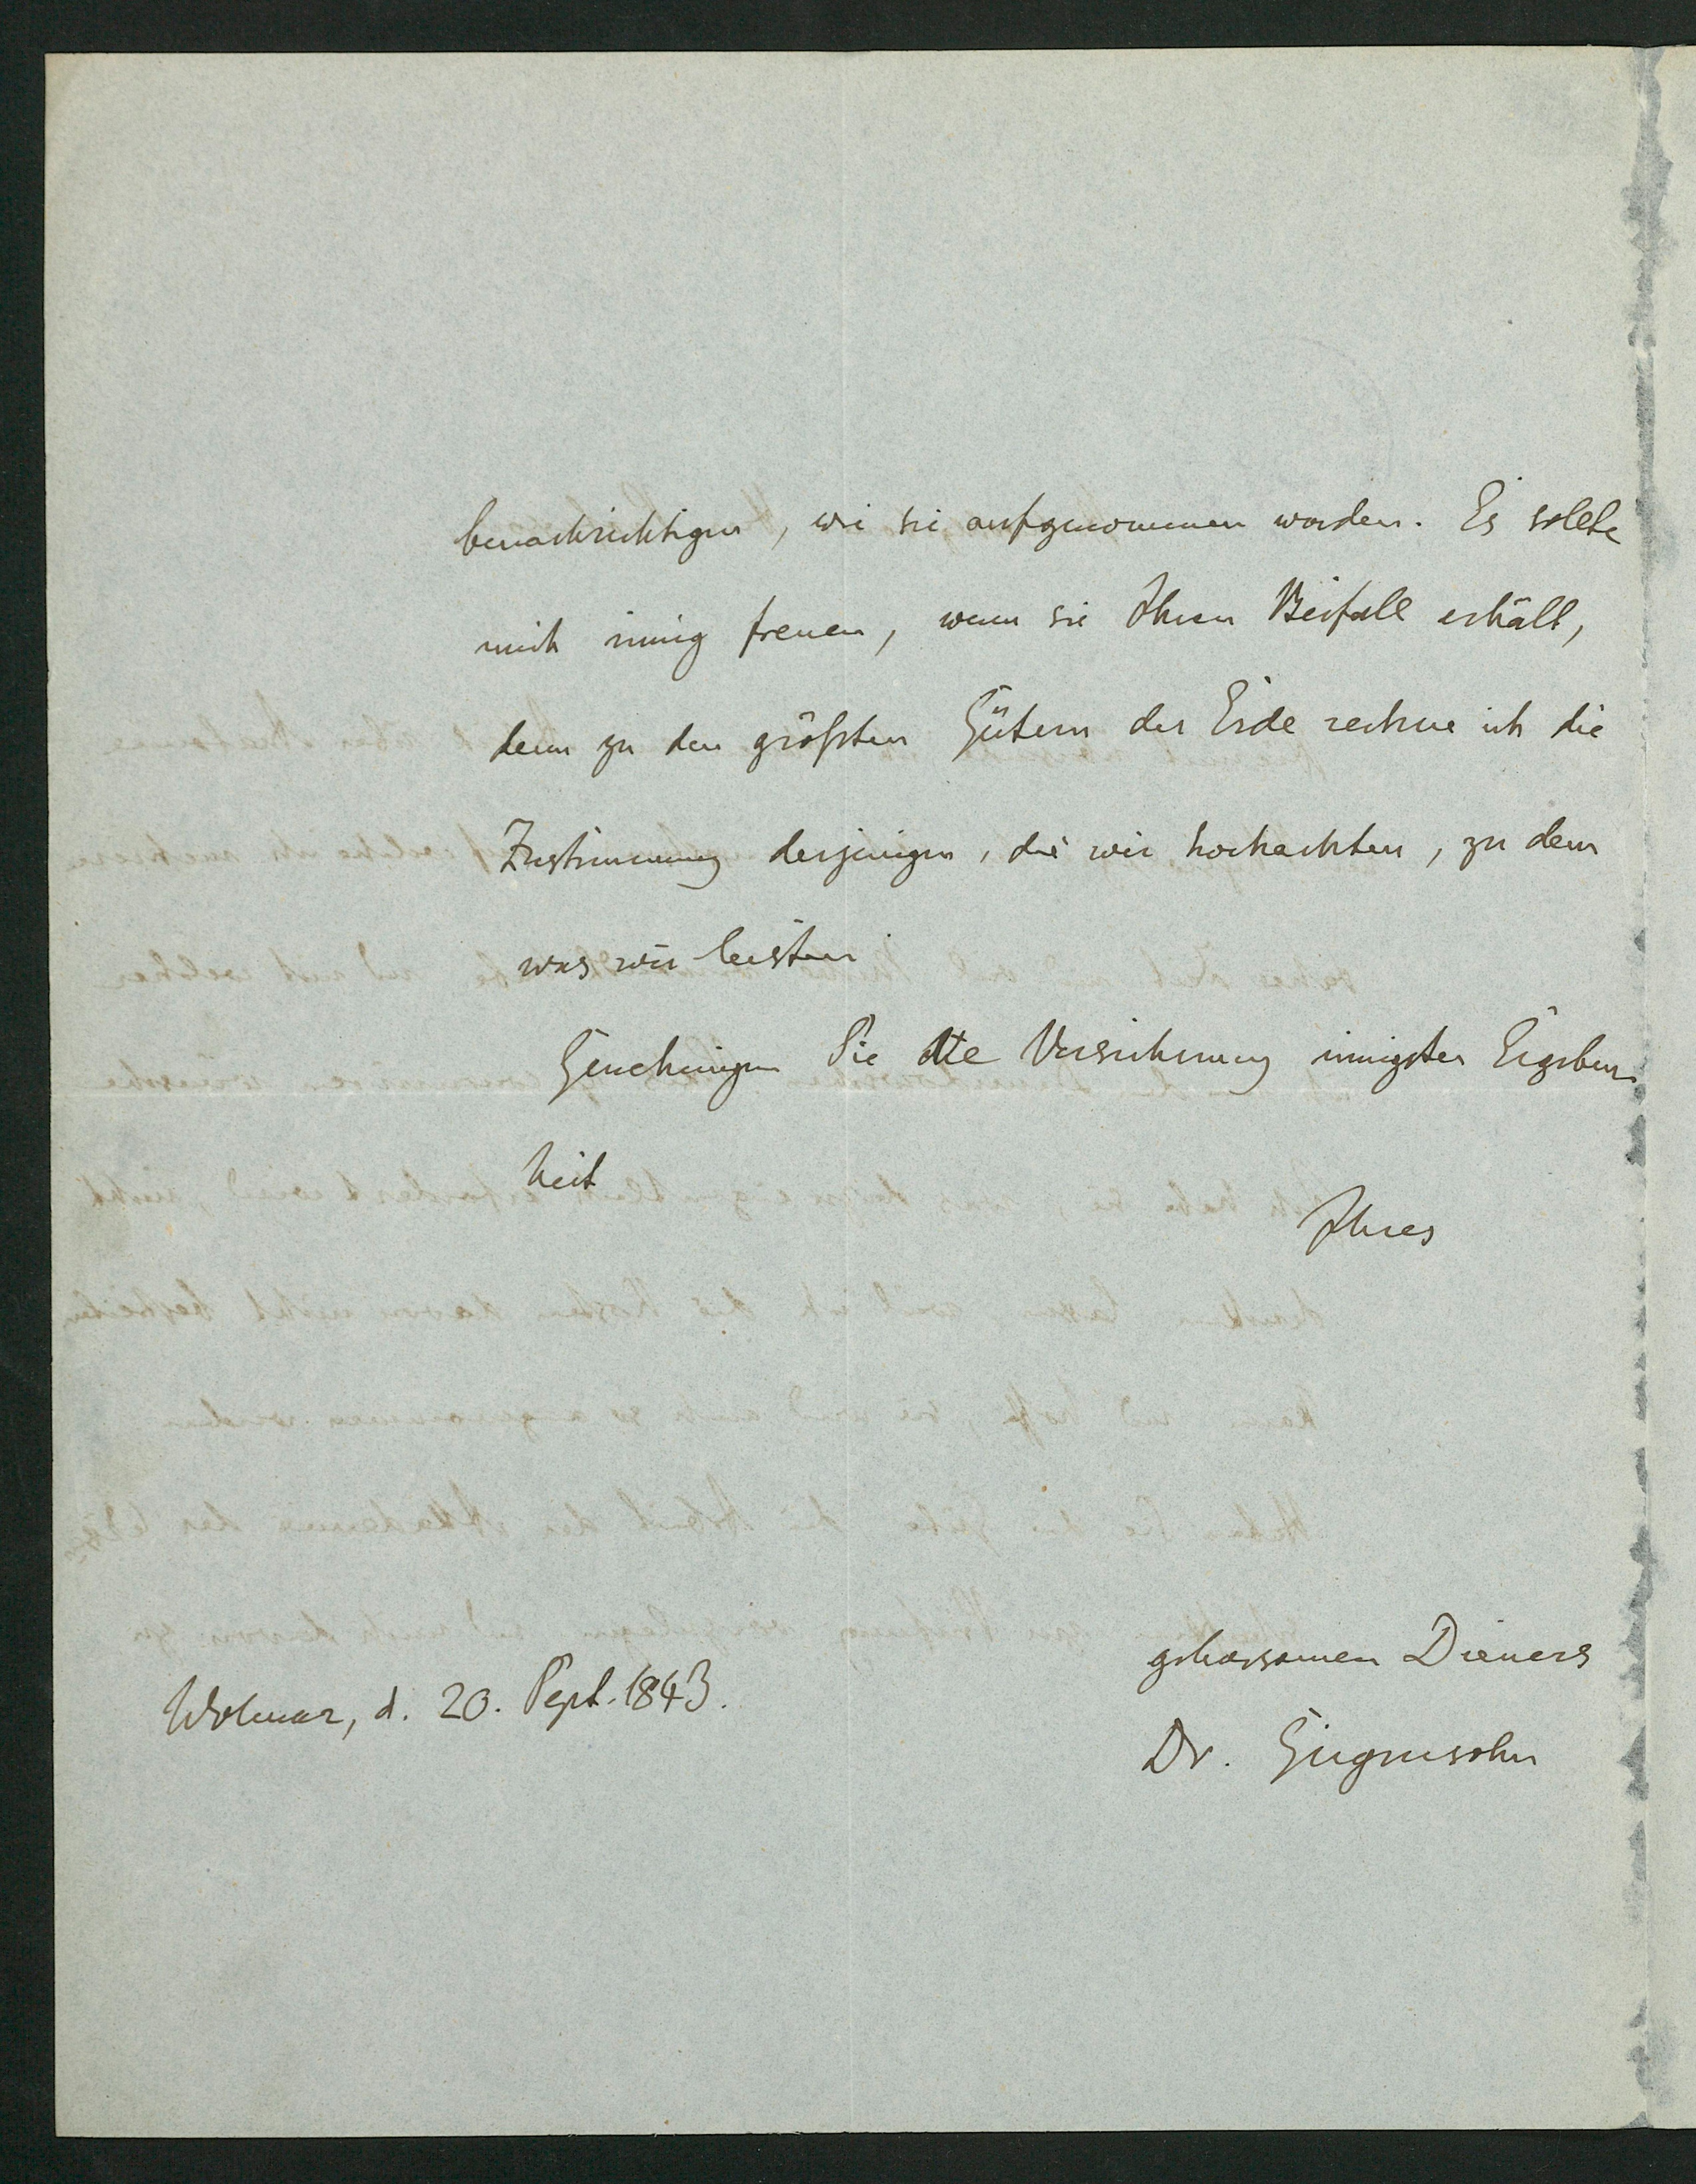 benachrichtigen, wie sie aufgenommen worden. Es sollte
mich innig freuen, wenn sie Ihren Beifall erhält,
denn zu den größten Gütern der Erde rechne ich die
Zustimmung derjenigen, die wir hochachten, zu dem
was wir leisten
Genehmigen Sie die Versicherung innigster Ergeben-
heit
Ihres
gehorsamen Dieners
Wolmar, d. 20. Sept. 1843.
Dr. Girgensohn